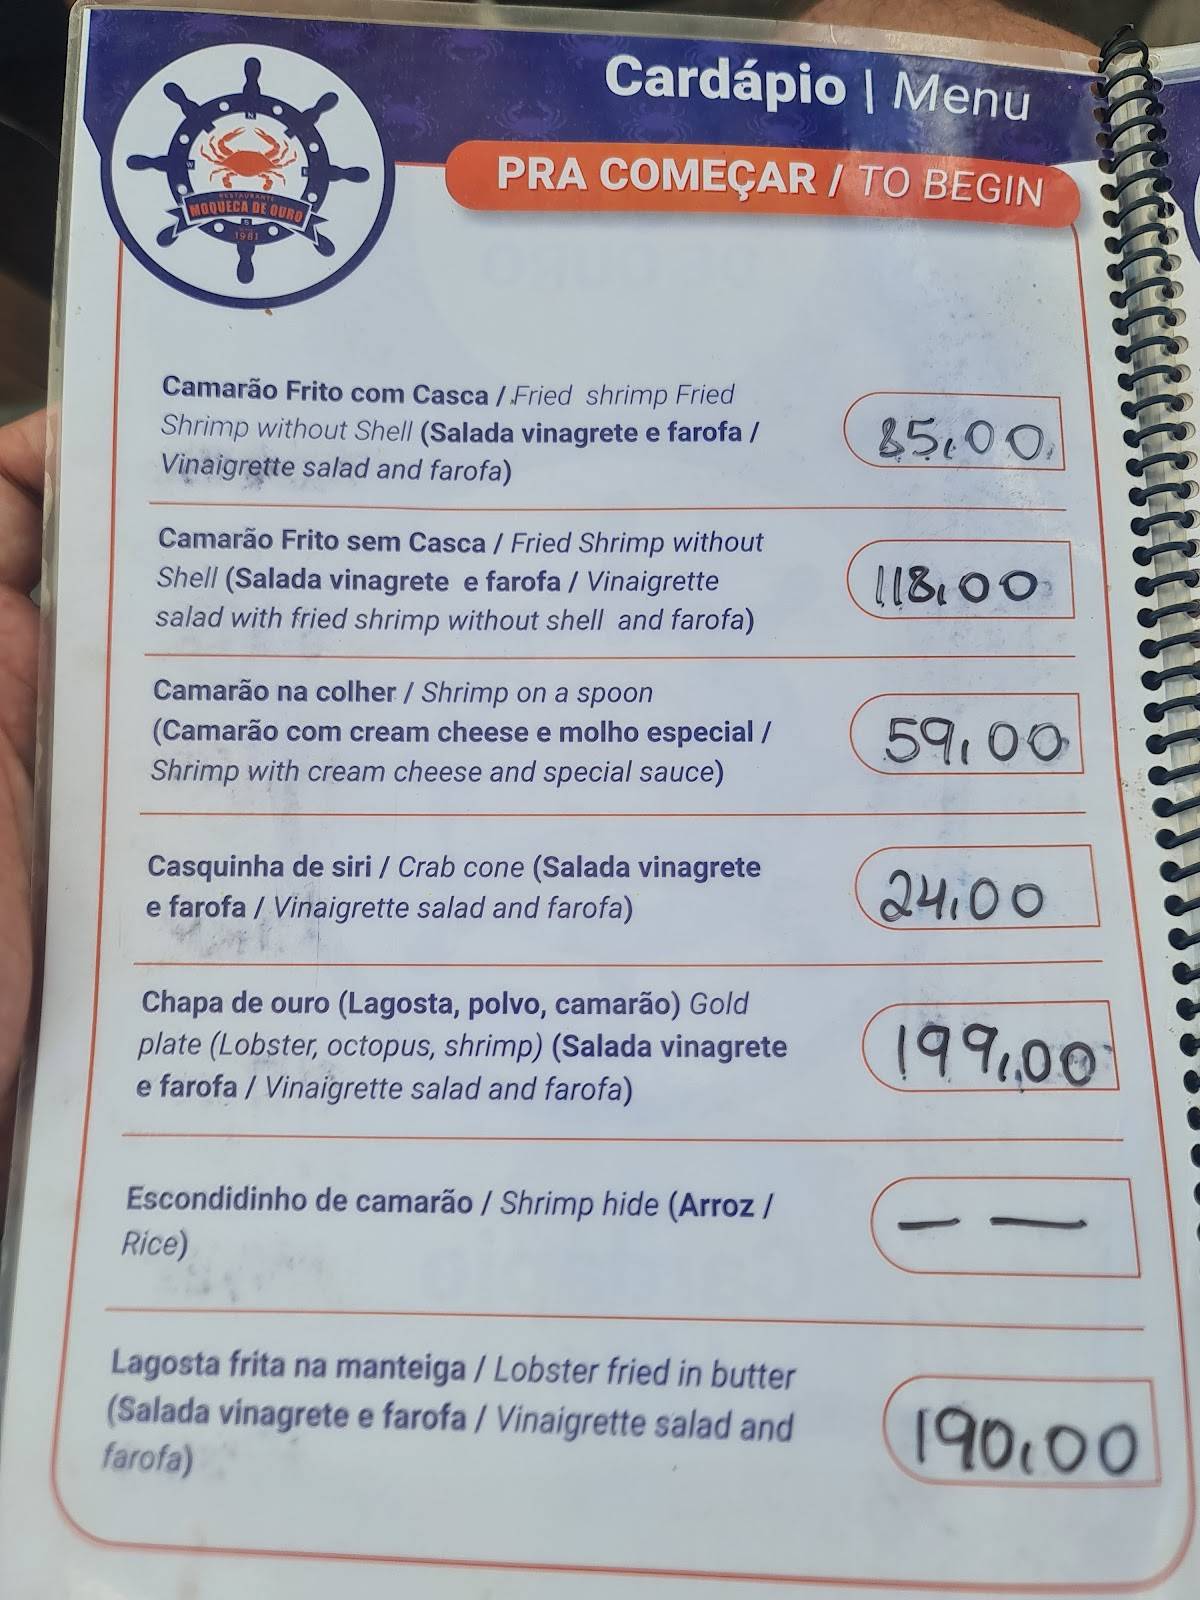 Cardápio | Menu
PRA COMEÇAR / TO BEGIN
N
W
RESTAURANTE
MOQUECA DE OURO
S
1981
Camarão Frito com Casca / Fried shrimp Fried
Shrimp without Shell (Salada vinagrete e farofa /
Vinaigrette salad and farofa)
85,00
Camarão Frito sem Casca / Fried Shrimp without
Shell (Salada vinagrete e farofa / Vinaigrette
salad with fried shrimp without shell and farofa)
118,00
Camarão na colher / Shrimp on a spoon
(Camarão com cream cheese e molho especial /
Shrimp with cream cheese and special sauce)
59,00
Casquinha de siri / Crab cone (Salada vinagrete
e farofa / Vinaigrette salad and farofa)
24,00
Chapa de ouro (Lagosta, polvo, camarão) Gold
plate (Lobster, octopus, shrimp) (Salada vinagrete
e farofa / Vinaigrette salad and farofa)
199,00
Escondidinho de camarão / Shrimp hide (Arroz /
Rice)
— —
Lagosta frita na manteiga / Lobster fried in butter
(Salada vinagrete e farofa / Vinaigrette salad and
farofa)
190,00